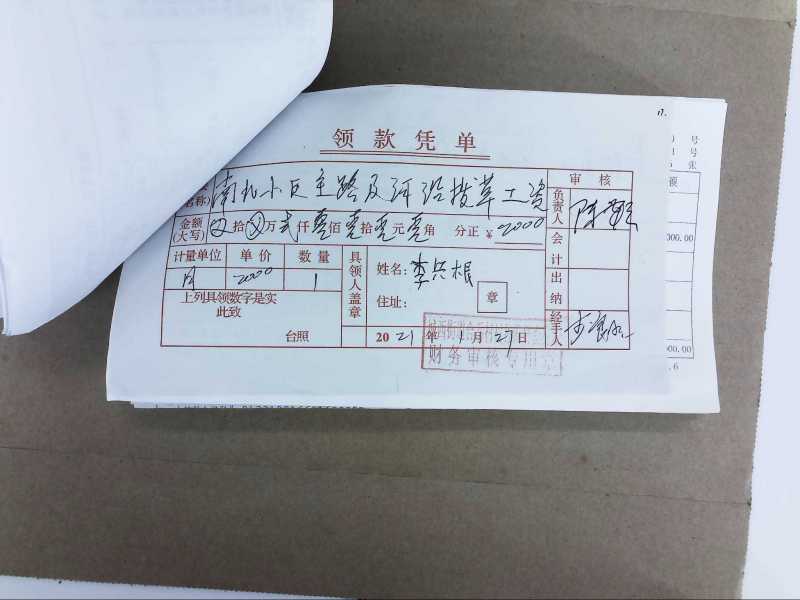 17.
领款凭单
名称) 南九小区主路及河沿拔草工资
审核
金额(大写) 拾 万 贰仟零佰零拾零元零角 分正 ¥ 2000
计量单位 单价 数量
月 2000 1
上列具领数字是实
此致
台照
具领人盖章
姓名:
住址:
章
2021年1月27日
财务审核专用章
负责人 陈
会计
出纳
经手人
号
号
张
额
000.00
000.00
.6